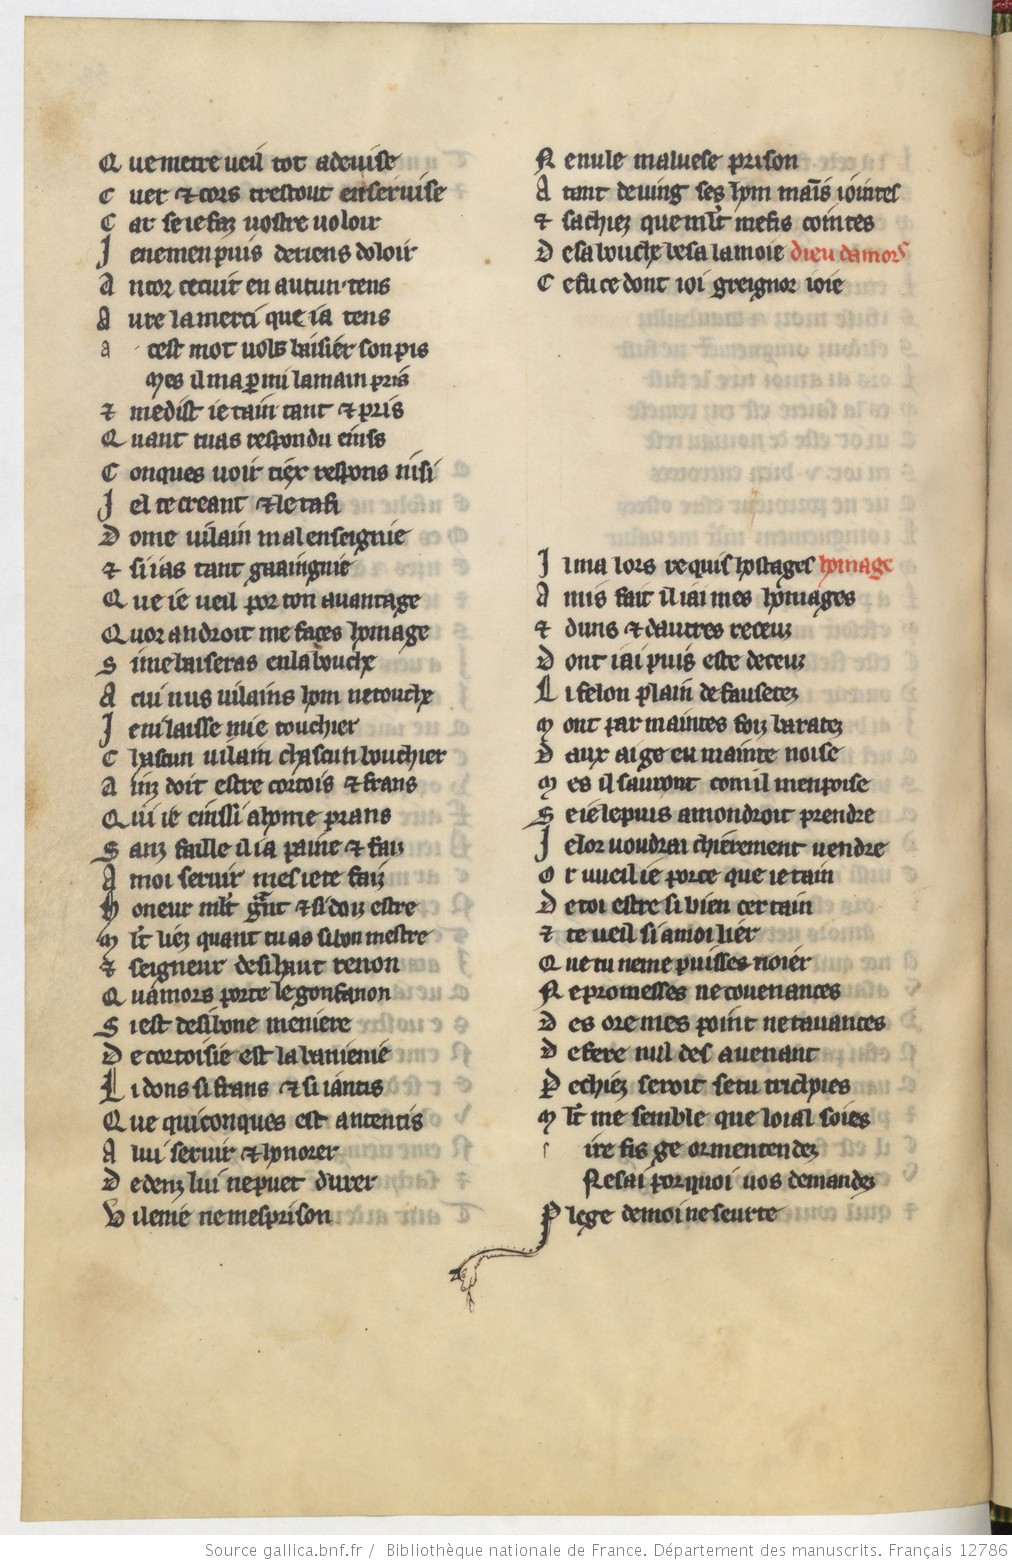 Q ue metre ueil tot a deuise
C uer ⁊ cors trestout en seruise
C ar se ie faz uostre uoloir
J e ne men puis de riens doloir
A ncor ce cuit en aucun tens
A ure la merci que ia tens
a cest mot uols baisier son pis
Mes il ma p mi la main pris
⁊ me dist ie taim tant ⁊ pris
Q uant tu as respondu einss
C onques uoir tiex respons nisi
J el te creant ⁊ le tafi
D ome uilain mal enseignie
⁊ si i as tant gaaingnie
Q ue ie ueil por ton auantage
Q uor androit me faces homage
S i me baiseras en la bouche
A cui nus uilains hom ne touche
J e ni laisse mie touchier
C hascun uilain chascun bouchier
A inz doit estre cortois ⁊ frans
Q ui ie einssi a home prans
S anz faille il i a paine ⁊ fais
A moi seruir mes ie te faiz
H oneur mlt grnt ⁊ si doiz estre
M lt liez quant tu as si bon mestre
⁊ seigneur de si haut renon
Q uamors porte le gonfanon
S i est de si bone meniere
D e cortoisie est la baniere
L i dons si frans ⁊ si iantis
Q ue quiconques est antentis
A lui seruir ⁊ honorer
D edenz lui ne puet durer
V ilenie ne mesprison
N e nule maluese prison
A tant deuing ses hom mains iointes
⁊ sachiez que mlt me fis cointes
D e sa bouche besa la moie dieu damors
C e fu ce dont ioi greignor ioie
J l ma lors requis hostages homage
A mis fait il iai mes homages
⁊ duns ⁊ dautres receuz
D ont iai puis este deceuz
L i felon plain de fausetez
M ont par maintes foiz baratez
D aux ai ge eu mainte noise
M es il sauront com il men poise
S e ie le puis a mon droit prendre
J e lor uoudrai chierement uendre
O r uueil ie porce que ie taim
D e toi estre si bien certain
⁊ te ueil si a moi lier
Q ue tu ne me puisses noier
N e promesses ne couenances
D es ore mes point ne tauances
D e fere nul des auenant
P echiez seroit se tu trichoies
M lt me semble que loial soies
s ire fis ge or mentendez
Ne sai por quoi uos demandez
P lege de moi ne seurte
Source gallica.bnf.fr / Bibliothèque nationale de France. Département des manuscrits. Français 12786